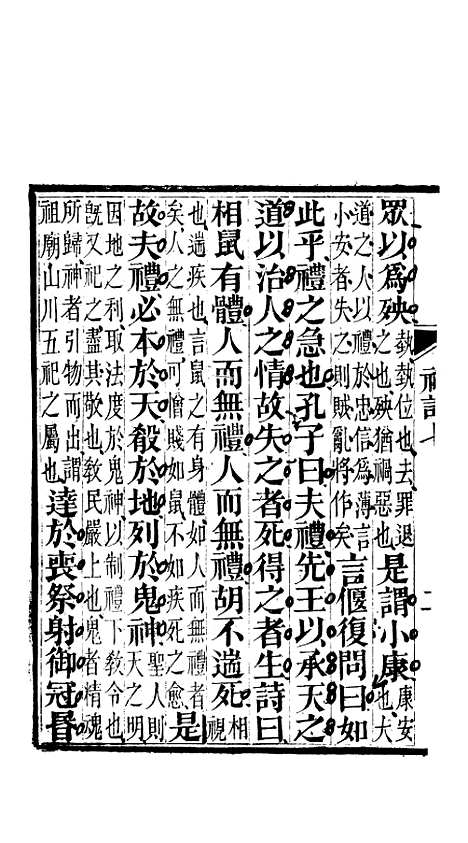 眾以爲殃埶埶位也去罪退
之也殃猶禍惡也是謂小康康安
也大
道之人以禮於忠信爲薄言
小安者失之則賊亂將作矣言偃復問曰如
此乎禮之急也孔子曰夫禮先王以承天之
道以治人之情故失之者死得之者生詩曰
相鼠有體人而無禮人而無禮胡不遄死相
視
也遄疾也言鼠之有身體如人而無禮者
矣人之無禮可憎賤如鼠不如疾死之愈是
故夫禮必本於天殽於地列於鬼神聖人則
天之明
因地之利取法度於鬼神以制禮下敎令也
既又祀之盡其敬也敎民嚴上也鬼者精魂
所歸神者引物而出謂
祖廟山川五祀之屬也達於喪祭射御冠昬